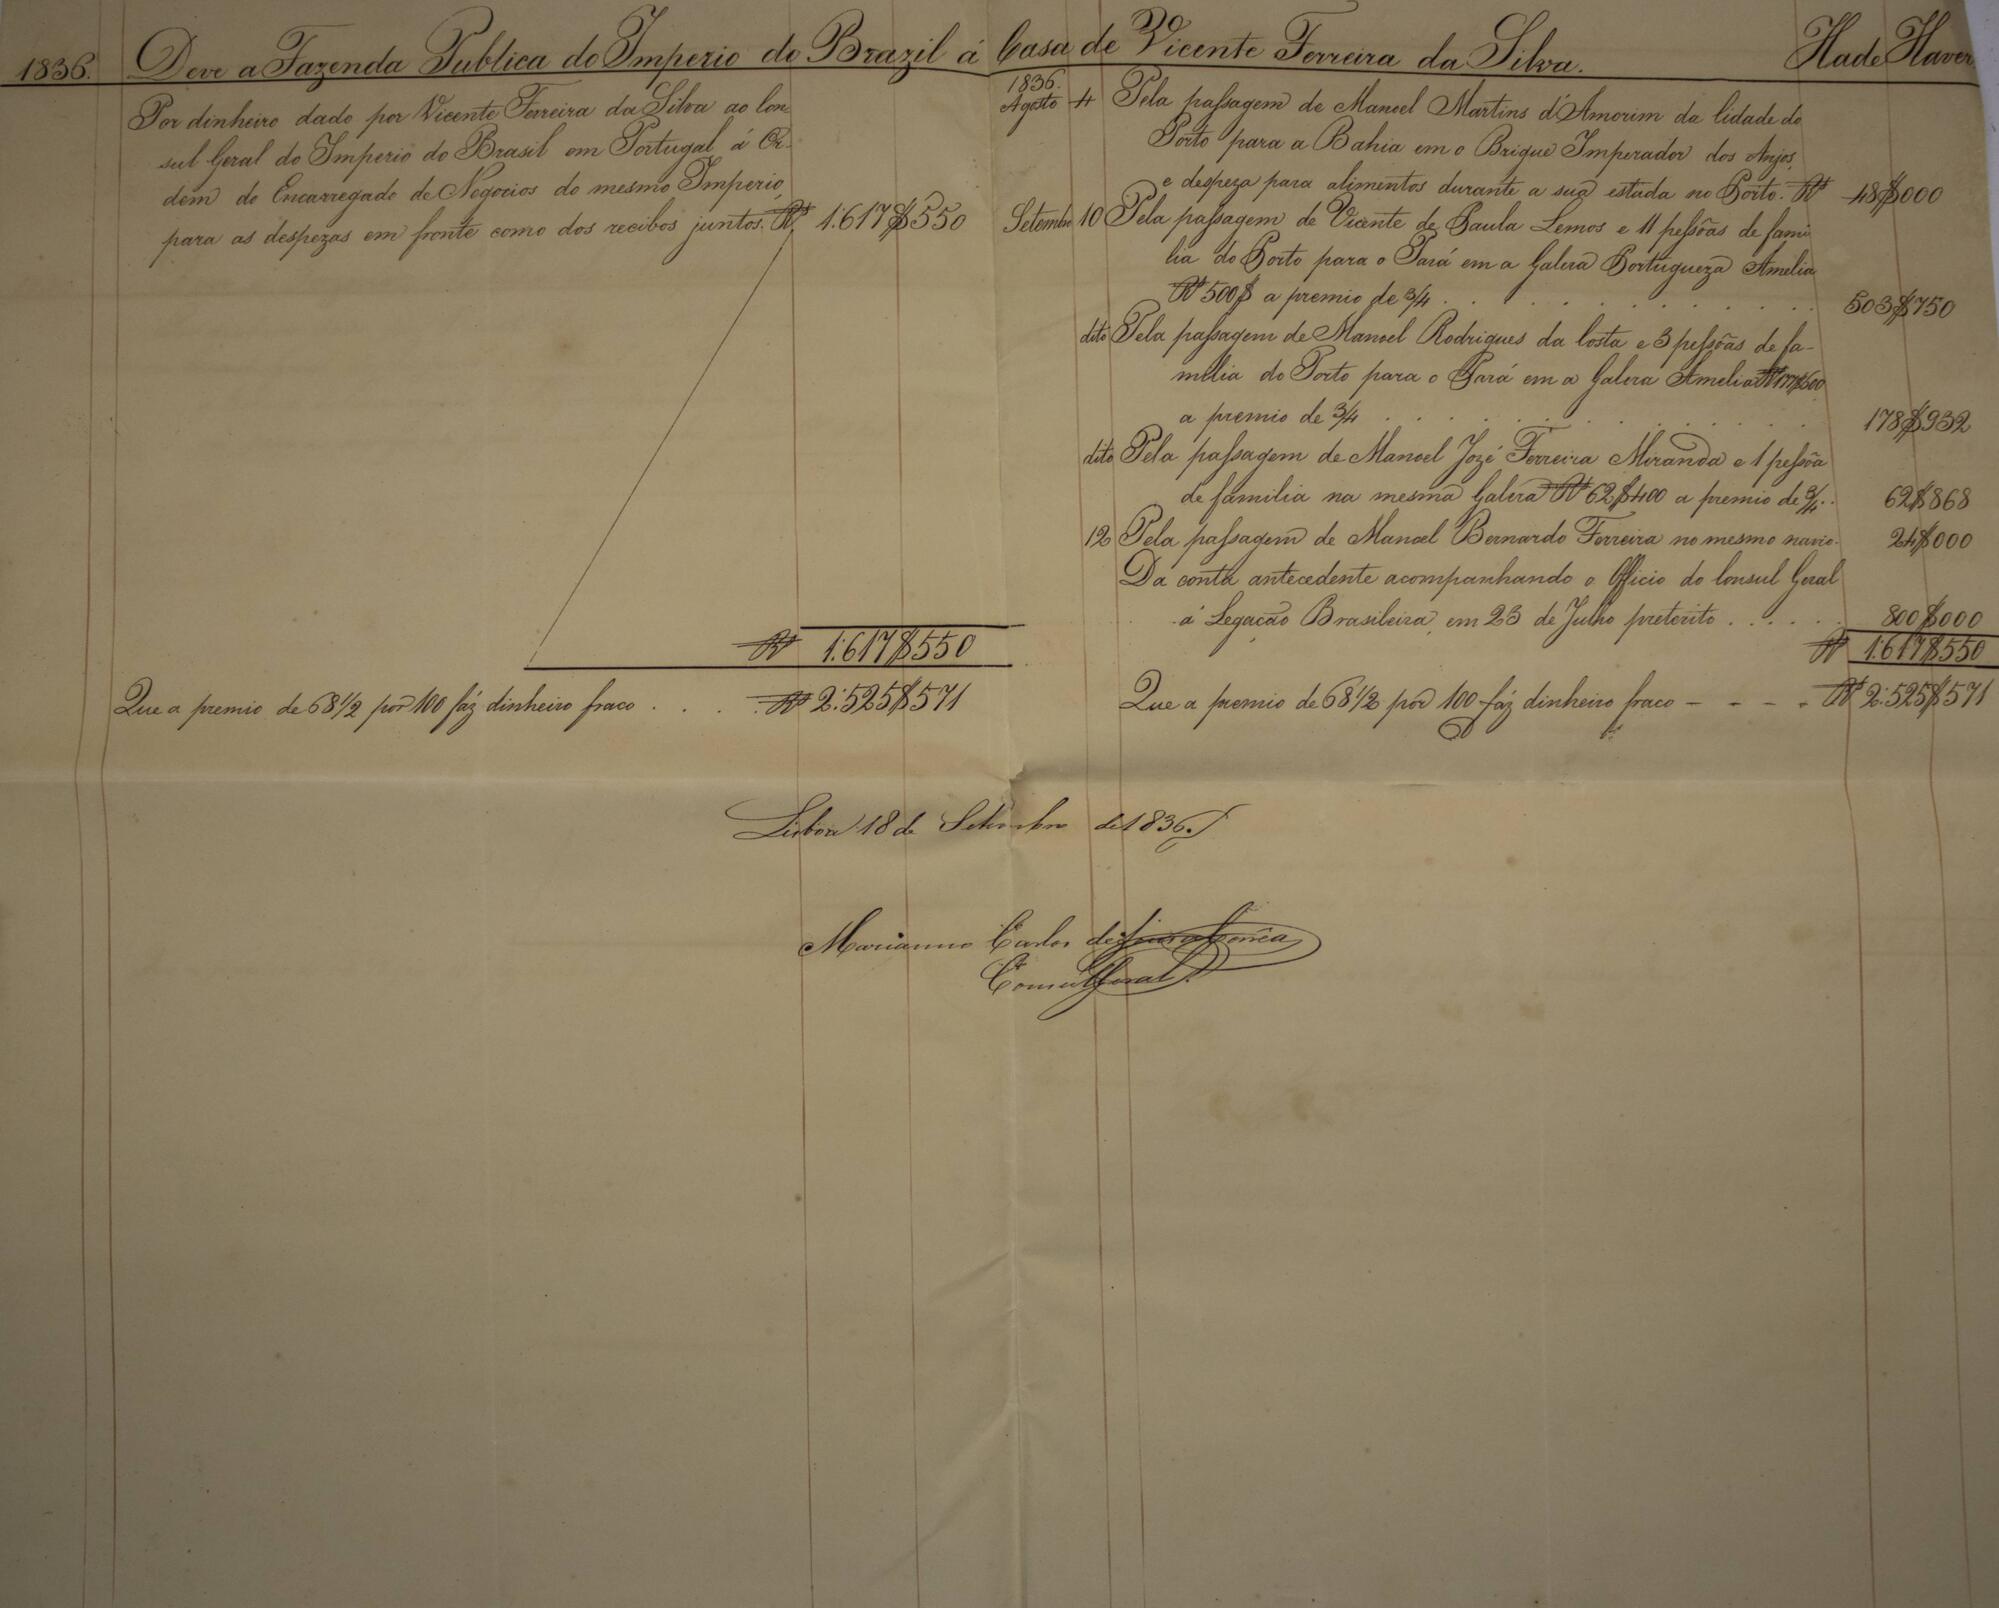 1836. Deve a Fazenda Publica do Imperio do Brazil á Casa de Vicente Ferreira da Silva. Hade Haver
Por dinheiro dado por Vicente Ferreira da Silva ao Con
sul Geral do Imperio do Brasil em Portugal á Or-
dem do Encarregado de Negocios do mesmo Imperio,
para as despezas em fronte como dos recibos juntos. Rs 1:617$550
Rs 1:617$550
Que a premio de 68 1/2 por 100 fáz dinheiro fraco . . . . Rs 2:525$571
1836.
Agosto 4 Pela passagem de Manoel Martins d'Amorim da Cidade do
Porto para a Bahia em o Brigue Imperador dos Anjos,
e despeza para alimentos durante a sua estada no Porto. Rs 48$000
Setembro 10 Pela passagem de Vicente de Paula Lemos e 11 pessôas de fami
lia do Porto para o Pará em a Galera Portugueza Amelia
Rs 500$ a premio de 3/4 . . . . . . . . . . 503$750
dito Pela passagem de Manoel Rodrigues da Costa e 3 pessôas de fa-
milia do Porto para o Pará em a Galera Amelia Rs 177$600
a premio de 3/4 . . . . . . . . . . 178$932
dito Pela passagem de Manoel Jozé Ferreira Miranda e 1 pessôa
de familia na mesma Galera Rs 62$400 a premio de 3/4 . . 62$868
12 Pela passagem de Manoel Bernardo Ferreira no mesmo navio. 24$000
Da conta antecedente acompanhando o Officio do Consul Geral
á Legação Brasileira, em 23 de Julho preterito . . . . . . 800$000
Rs 1:617$550
Que a premio de 68 1/2 por 100 fáz dinheiro fraco - - - - Rs 2:525$571
Lisboa 18 de Setembro de 1836.
Marianno Carlos de Souza Corrêa
Consul Geral.